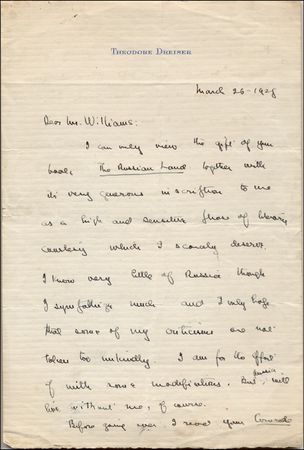 THEODORE DREISER
March 26-1928
Dear Mr. Williams:
I can only view the gift of your
book, The Russian Land together with
its very generous inscription to me
as a high and sensitive of literary
courtesy which I scarcely deserve.
I know very little of Russia though
I sympathize much and I only hope
that some of my criticisms are not
taken too unkindly. I am for the effort
of with some modifications. But, Russia will
live without me, of course.
Before going over I read your